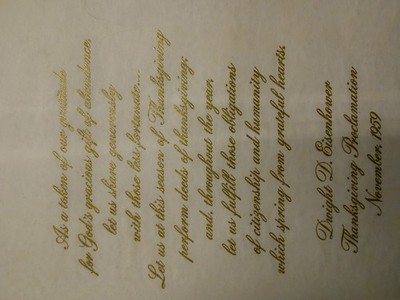 As a token of our gratitude
for God's gracious gift of abundance,
let us share generously
with those less fortunate....
Let us at this season of Thanksgiving
perform deeds of thanksgiving;
and, throughout the year,
let us fulfill those obligations
of citizenship and humanity
which spring from grateful hearts.
Dwight D. Eisenhower
Thanksgiving Proclamation
November, 1959